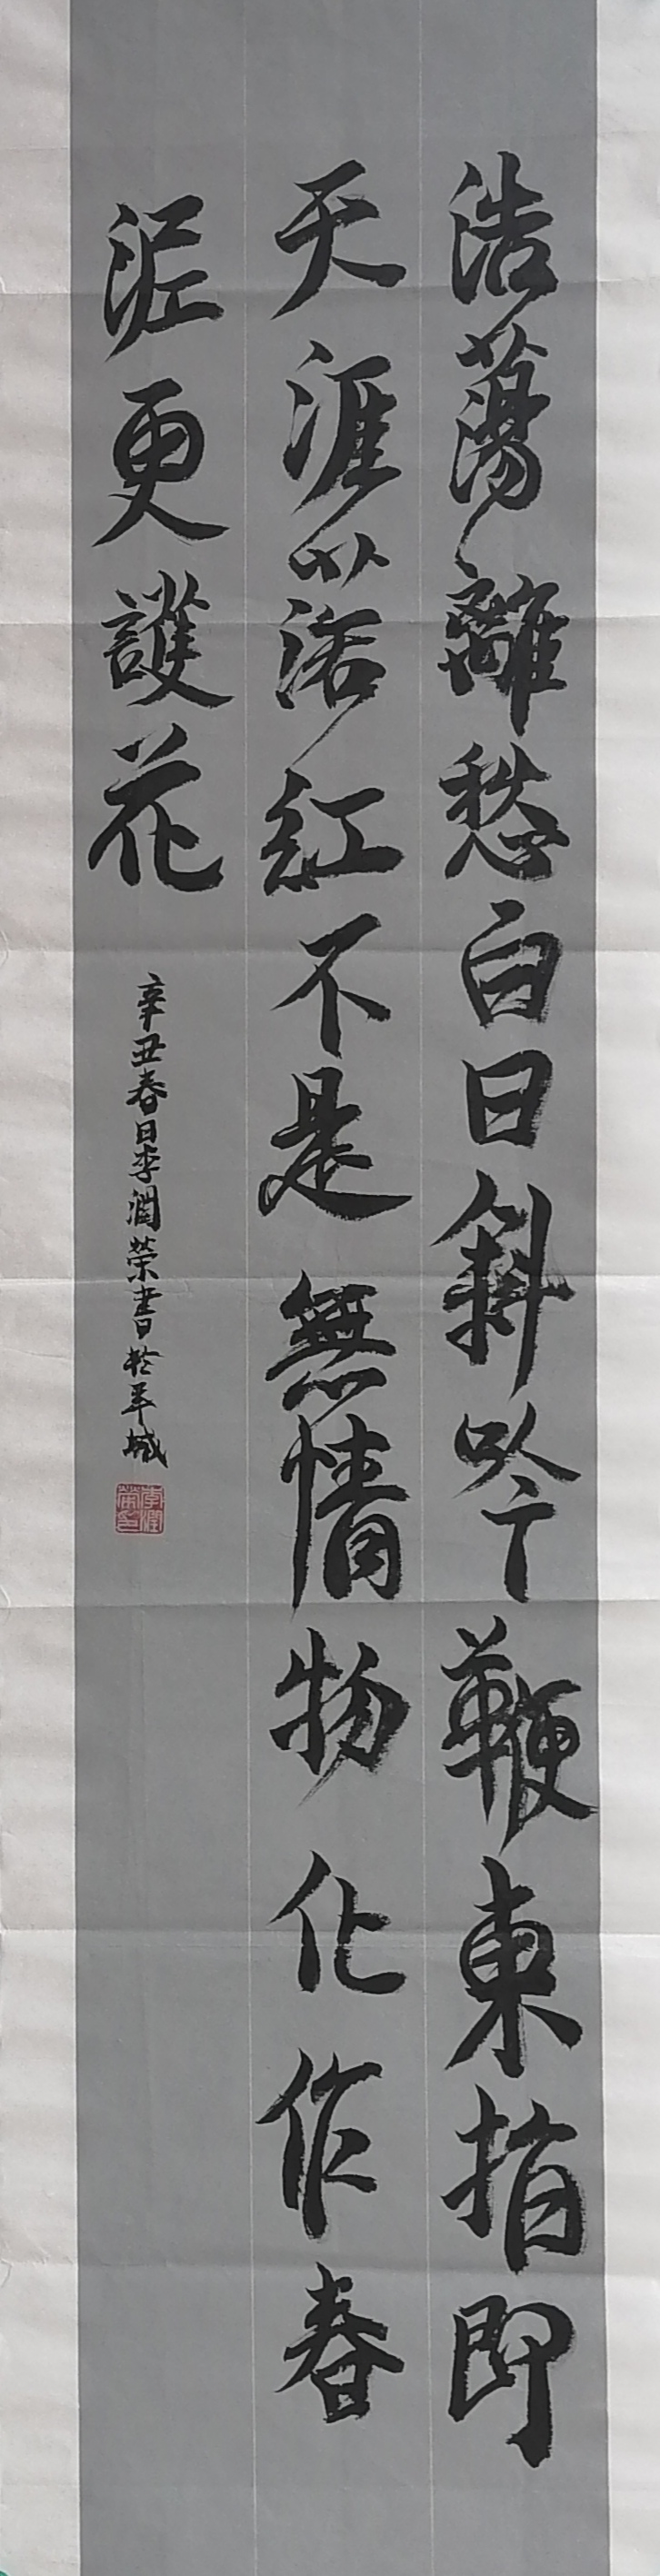 浩蕩離愁白日斜吟鞭東指即
天涯落紅不是無情物化作春
泥更護花
辛丑春日李潤榮書於羊城
李潤榮印